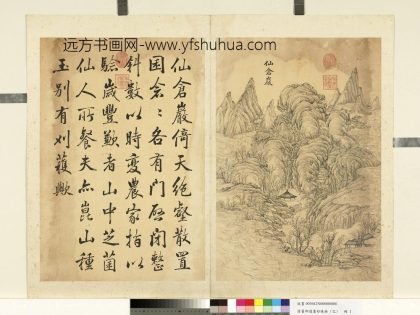 远方书画网- www.yfshuhua.com
仙倉巖
仙倉巖倚天絶壑散置
囷倉〻各有門啟閉整
斜數以時變農家指以
驗歲豐歉者山中芝菌
仙人所餐夫亦崑山種
玉別有刈穫歟